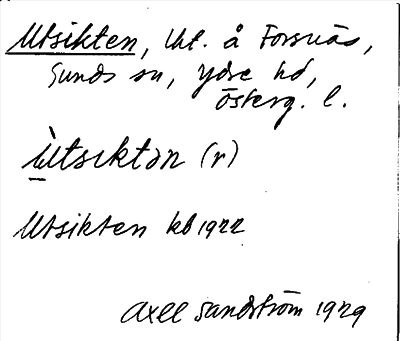 Utsikten, lht. å Forsnäs,
Sunds sn, Ydre hd,
Österg. l.
ùtsiktən (r)
Utsikten kb 1922
Axel Sandström 1929